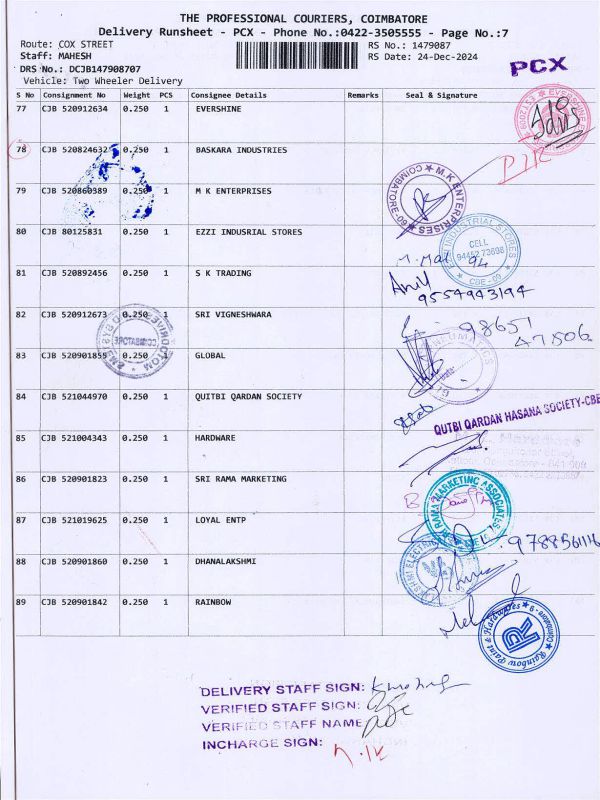 THE PROFESSIONAL COURIERS, COIMBATORE
Delivery Runsheet - PCX - Phone No.:0422-3505555 - Page No.:7
Route: COX STREET
RS No.: 1479087
Staff: MAHESH
RS Date: 24-Dec-2024
DRS No.: DCJB147908707
Vehicle: Two Wheeler Delivery
PCX
S No Consignment No Weight PCS Consignee Details Remarks Seal & Signature
77 CJB 520912634 0.250 1 EVERSHINE
EVERSHINE
78 CJB 520824632 0.250 1 BASKARA INDUSTRIES
79 CJB 520860389 0.250 1 M K ENTERPRISES
M.K ENTERPRISES
80 CJB 80125831 0.250 1 EZZI INDUSRIAL STORES
INDUSTRIAL STORES
CELL
CBE - 09
81 CJB 520892456 0.250 1 S K TRADING
Anil
9554943194
82 CJB 520912673 0.250 1 SRI VIGNESHWARA
98651
47506
83 CJB 520901855 0.250 1 GLOBAL
84 CJB 521044970 0.250 1 QUITBI QARDAN SOCIETY
QUTBI QARDAN HASANA SOCIETY-CBE
85 CJB 521004343 0.250 1 HARDWARE
86 CJB 520901823 0.250 1 SRI RAMA MARKETING
RAMA MARKETING ASSOCIATES
87 CJB 521019625 0.250 1 LOYAL ENTP
88 CJB 520901860 0.250 1 DHANALAKSHMI
89 CJB 520901842 0.250 1 RAINBOW
Rainbow Paint & Hardwares
R
DELIVERY STAFF SIGN:
VERIFIED STAFF SIGN:
VERIFIED STAFF NAME
INCHARGE SIGN: